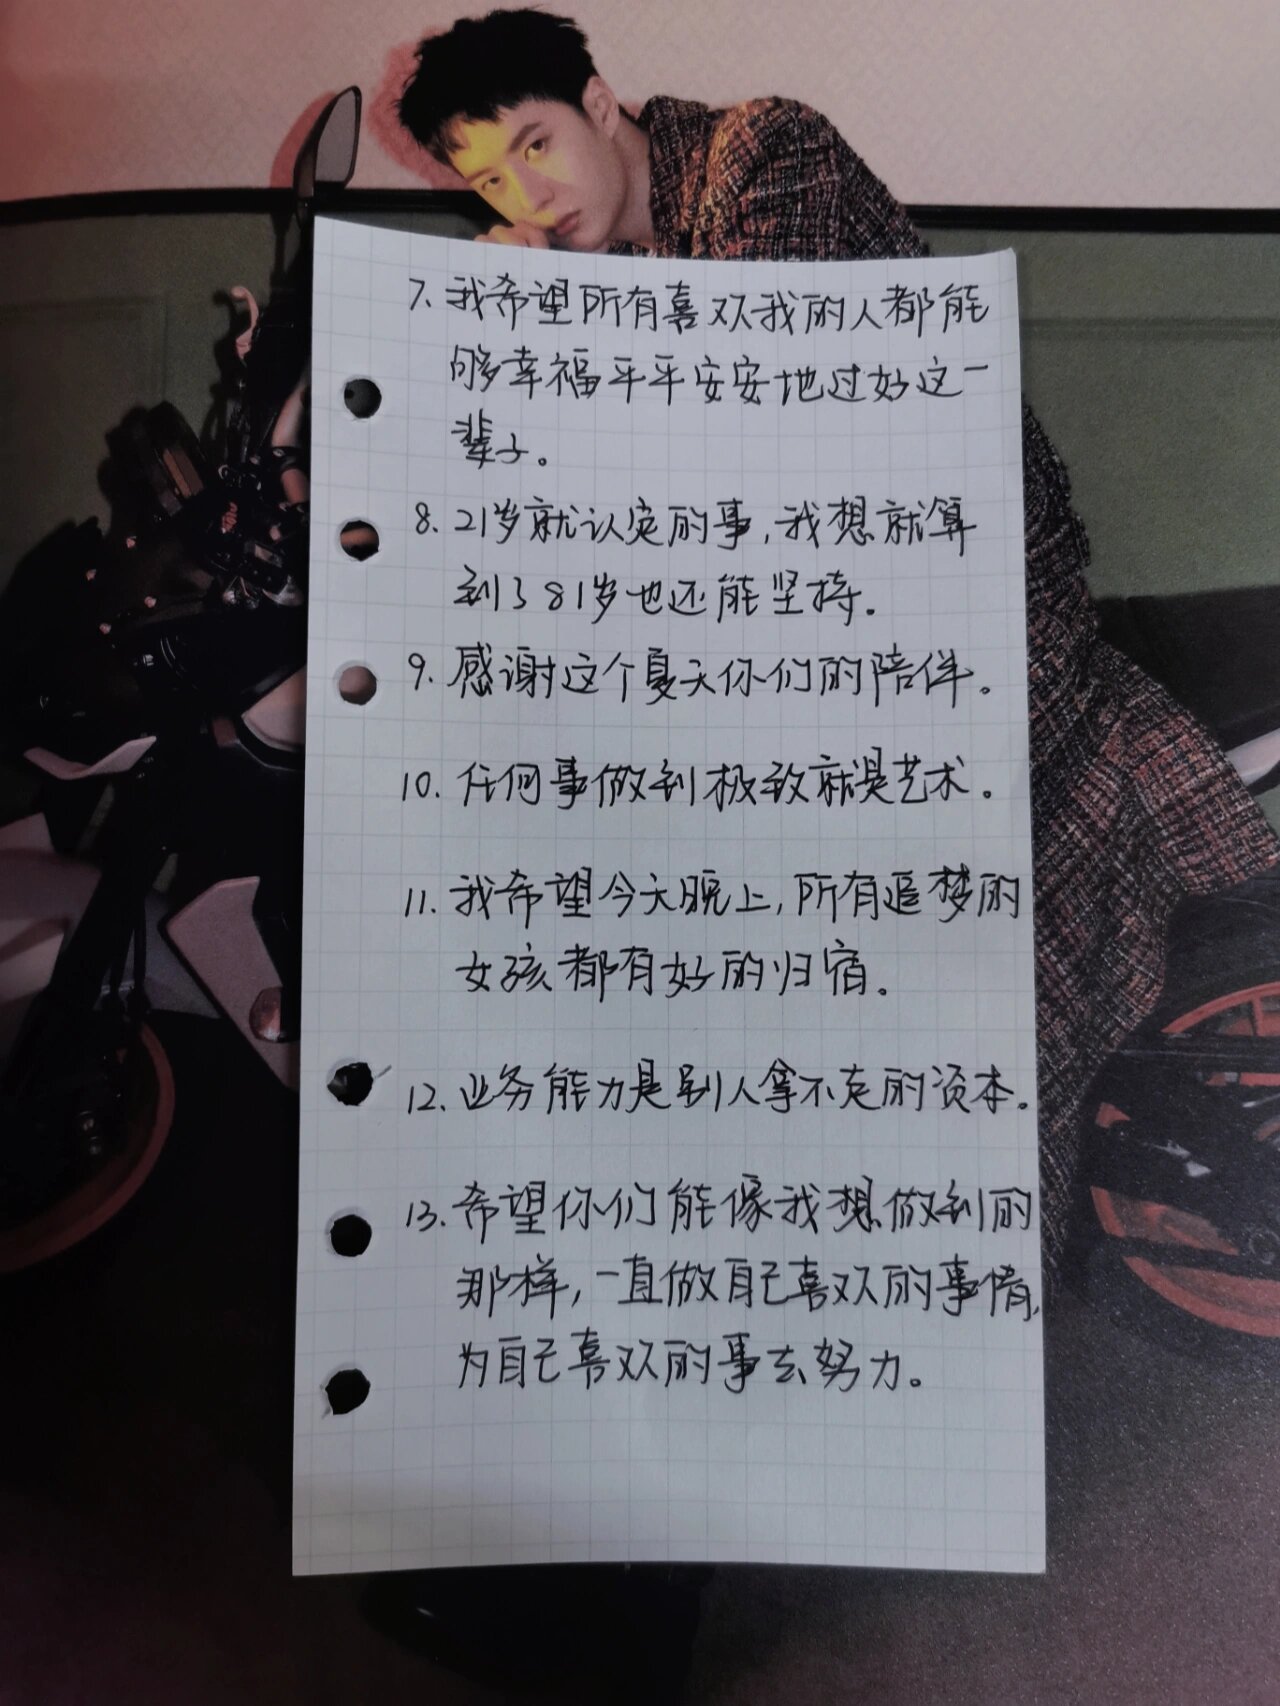 7. 我希望所有喜欢我的人都能
够幸福平平安安地过好这一
辈子。
8. 21岁就认定的事,我想就算
到了81岁也还能坚持。
9. 感谢这个夏天你们的陪伴。
10. 任何事做到极致就是艺术。
11. 我希望今天晚上,所有追梦的
女孩都有好的归宿。
12. 业务能力是别人拿不走的资本。
13. 希望你们能像我想做到的
那样,一直做自己喜欢的事情,
为自己喜欢的事去努力。